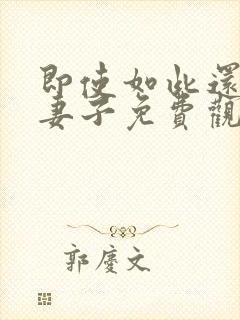 即使如此還
妻子免費觀
郭慶文